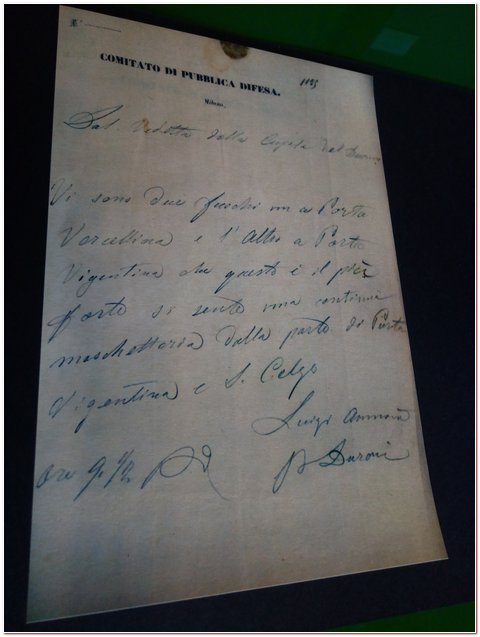 N.°
COMITATO DI PUBBLICA DIFESA.
1125
Milano,
Dal Vedetta dalla Cupola del Duomo
Vi sono due fuochi un a Porta
Vercellina e l'Altro a Porta
Vigentina che questo è il più
forte si sente una continua
moschetteria dalla parte di Porta
Vigentina e S. Celso
Luigi
Ore 9. 1/2
B Duroni